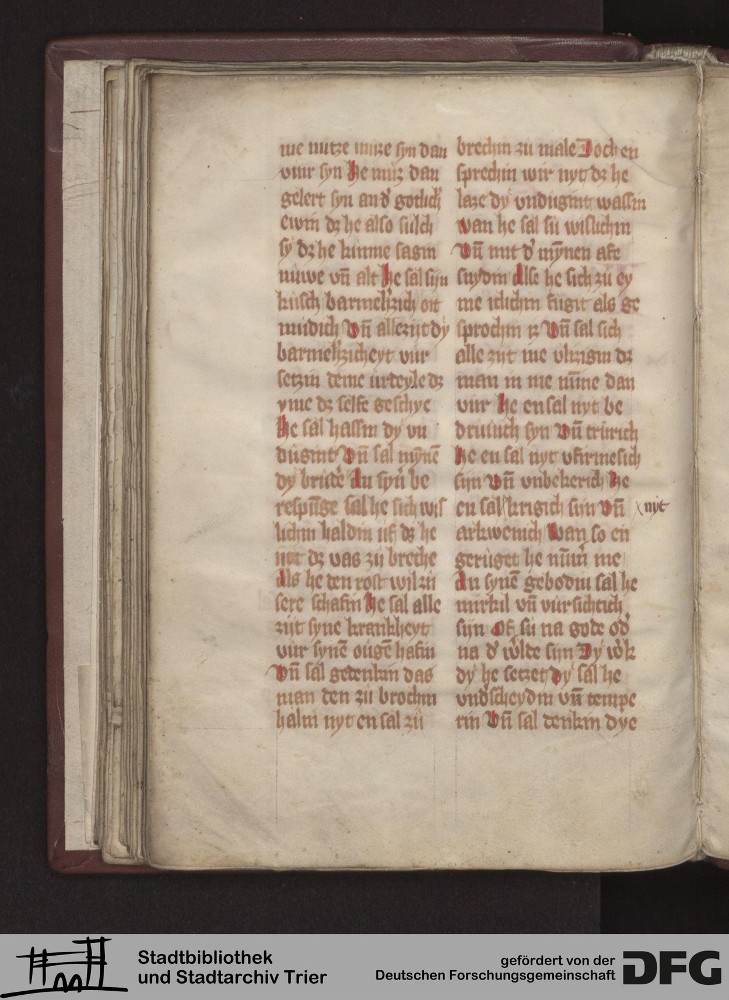 me nutze muze syn dan
vuir syn he muz dan
gelert syn an d' gotlich
ewin dz he also sulch
sy dz he kunne sagin
nuwe vn̄ alt he sal syn
kusch barmeh'zich oit
mudich Vn̄ allezit dy
barmeh'zicheyt vur
setzin deme urdeyle dz
yme dz selfe geschye
he sal hassin dy vn
dugint Vn̄ sal mȳne
dy brud'e An syn' be
respūge sal he sich wis
lichin haldin uf dz he
nit dz vas zu breche
Als he den rost wil zu
sere schafin he sal alle
zijt syne krankheyt
vur synē ougē hafin
Vn̄ sal gedenkin das
man den zu brochin
halm nyt en sal zu
brechin zu male Doch en
sprechin wir nyt dz he
laze dy vndugint wassin
wan he sal sii wislichin
Vn̄ mit d' mȳnen afe
snydin Alse he sich zu ey
me iclichin fugit als ge
sprochin iz Vn̄ sal sich
alle zijt me vlizigin dz
man in me mīne dan
vur he en sal nyt be
druuich syn Vn̄ trurich
He en sal nyt vfirmesich
sijn Vn̄ vnbekerich he
en sal krigich sijn Vn̄ × nyt
arkwenich Wan so en
geruget he nūm' me
An synē gebodin sal he
mirkil vn̄ vursichtich
sijn Of sii na gode od'
na d' w'lde sijn Dy w'k
dy he setzet dy sal he
vndscheydin vn̄ tempe
rin Vn̄ sal denkin dye
Stadtbibliothek
und Stadtarchiv Trier
gefördert von der
Deutschen Forschungsgemeinschaft
DFG